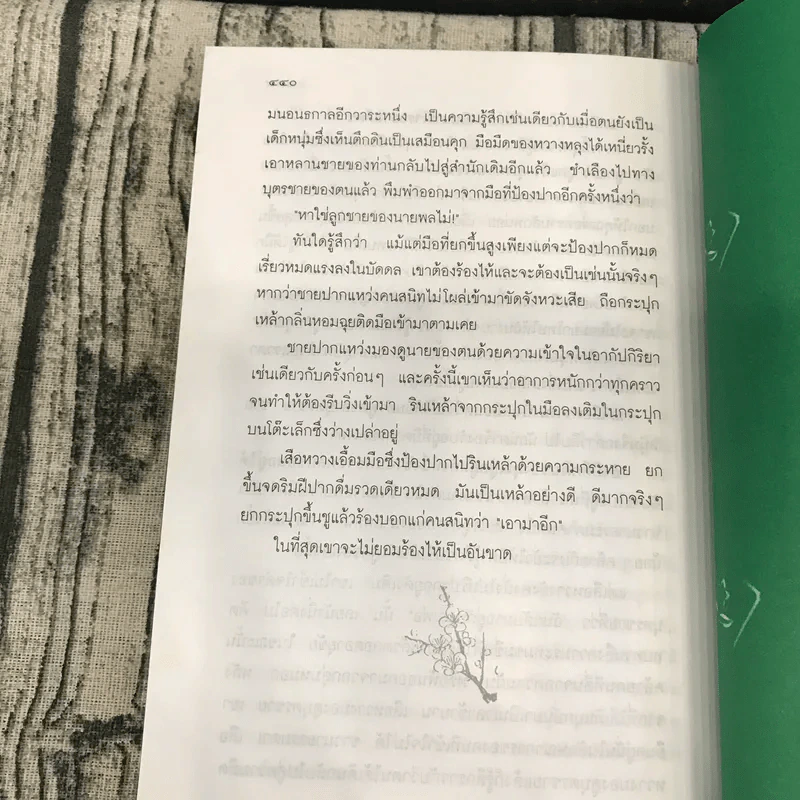 ๔๔๐
มนอนธกาลอีกวาระหนึ่ง เป็นความรู้สึกเช่นเดียวกับเมื่อตนยังเป็น
เด็กหนุ่มซึ่งเห็นตึกดินเป็นเสมือนคุก มือมืดของหวางหลุงได้เหนี่ยวรั้ง
เอาหลานชายของท่านกลับไปสู่สำนักเดิมอีกแล้ว ชำเลืองไปทาง
บุตรชายของตนแล้ว พึมพำออกมาจากมือที่ป้องปากอีกครั้งหนึ่งว่า
"หาใช่ลูกชายของนายพลไม่!"
ทันใดรู้สึกว่า แม้แต่มือที่ยกขึ้นสูงเพียงแต่จะป้องปากก็หมด
เรี่ยวหมดแรงลงในบัดดล เขาต้องร้องไห้และจะต้องเป็นเช่นนั้นจริงๆ
หากว่าชายปากแหว่งคนสนิทไม่โผล่เข้ามาขัดจังหวะเสีย ถือกระปุก
เหล้ากลิ่นหอมฉุยติดมือเข้ามาตามเคย
ชายปากแหว่งมองดูนายของตนด้วยความเข้าใจในอากัปกิริยา
เช่นเดียวกับครั้งก่อนๆ และครั้งนี้เขาเห็นว่าอาการหนักกว่าทุกคราว
จนทำให้ต้องรีบวิ่งเข้ามา รินเหล้าจากกระปุกในมือลงเติมในกระปุก
บนโต๊ะเล็กซึ่งว่างเปล่าอยู่
เสือหวางเอื้อมมือซึ่งป้องปากไปรินเหล้าด้วยความกระหาย ยก
ขึ้นจดริมฝีปากดื่มรวดเดียวหมด มันเป็นเหล้าอย่างดี ดีมากจริงๆ
ยกกระปุกขึ้นชูแล้วร้องบอกแก่คนสนิทว่า "เอามาอีก"
ในที่สุดเขาจะไม่ยอมร้องไห้เป็นอันขาด